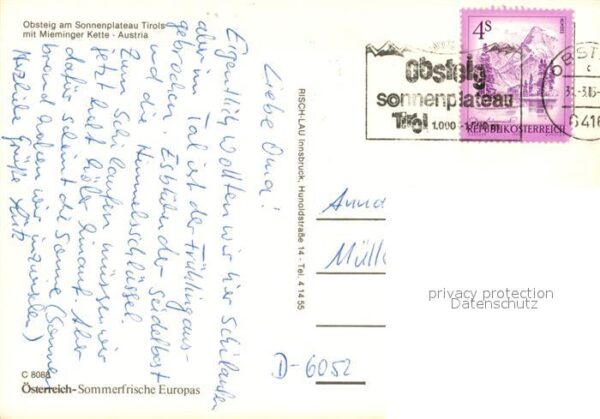 Obsteig am Sonnenplateau Tirols
mit Mieminger Kette - Austria
Liebe Oma!
Eigentlich wollten wir hier Schilaufen
aber im Tal ist der Frühling aus-
gebrochen. Es blühen der Seidelbast
und die Himmelsschlüssel.
Zum Schilaufen müssen wir
jetzt halt höher hinauf. Aber
dafür scheint die Sonne (Sonnen
brand haben wir inzwischen)
Herzliche Grüße
C 8088
Österreich-Sommerfrische Europas
RISCH-LAU Innsbruck, Hunoldstraße 14 - Tel. 4 14 55
obsteig
sonnenplateau
Tirol 1.000
4S
REPUBLIK ÖSTERREICH
OBST
6416
Anna
Müll
D-6052
privacy protection
Datenschutz